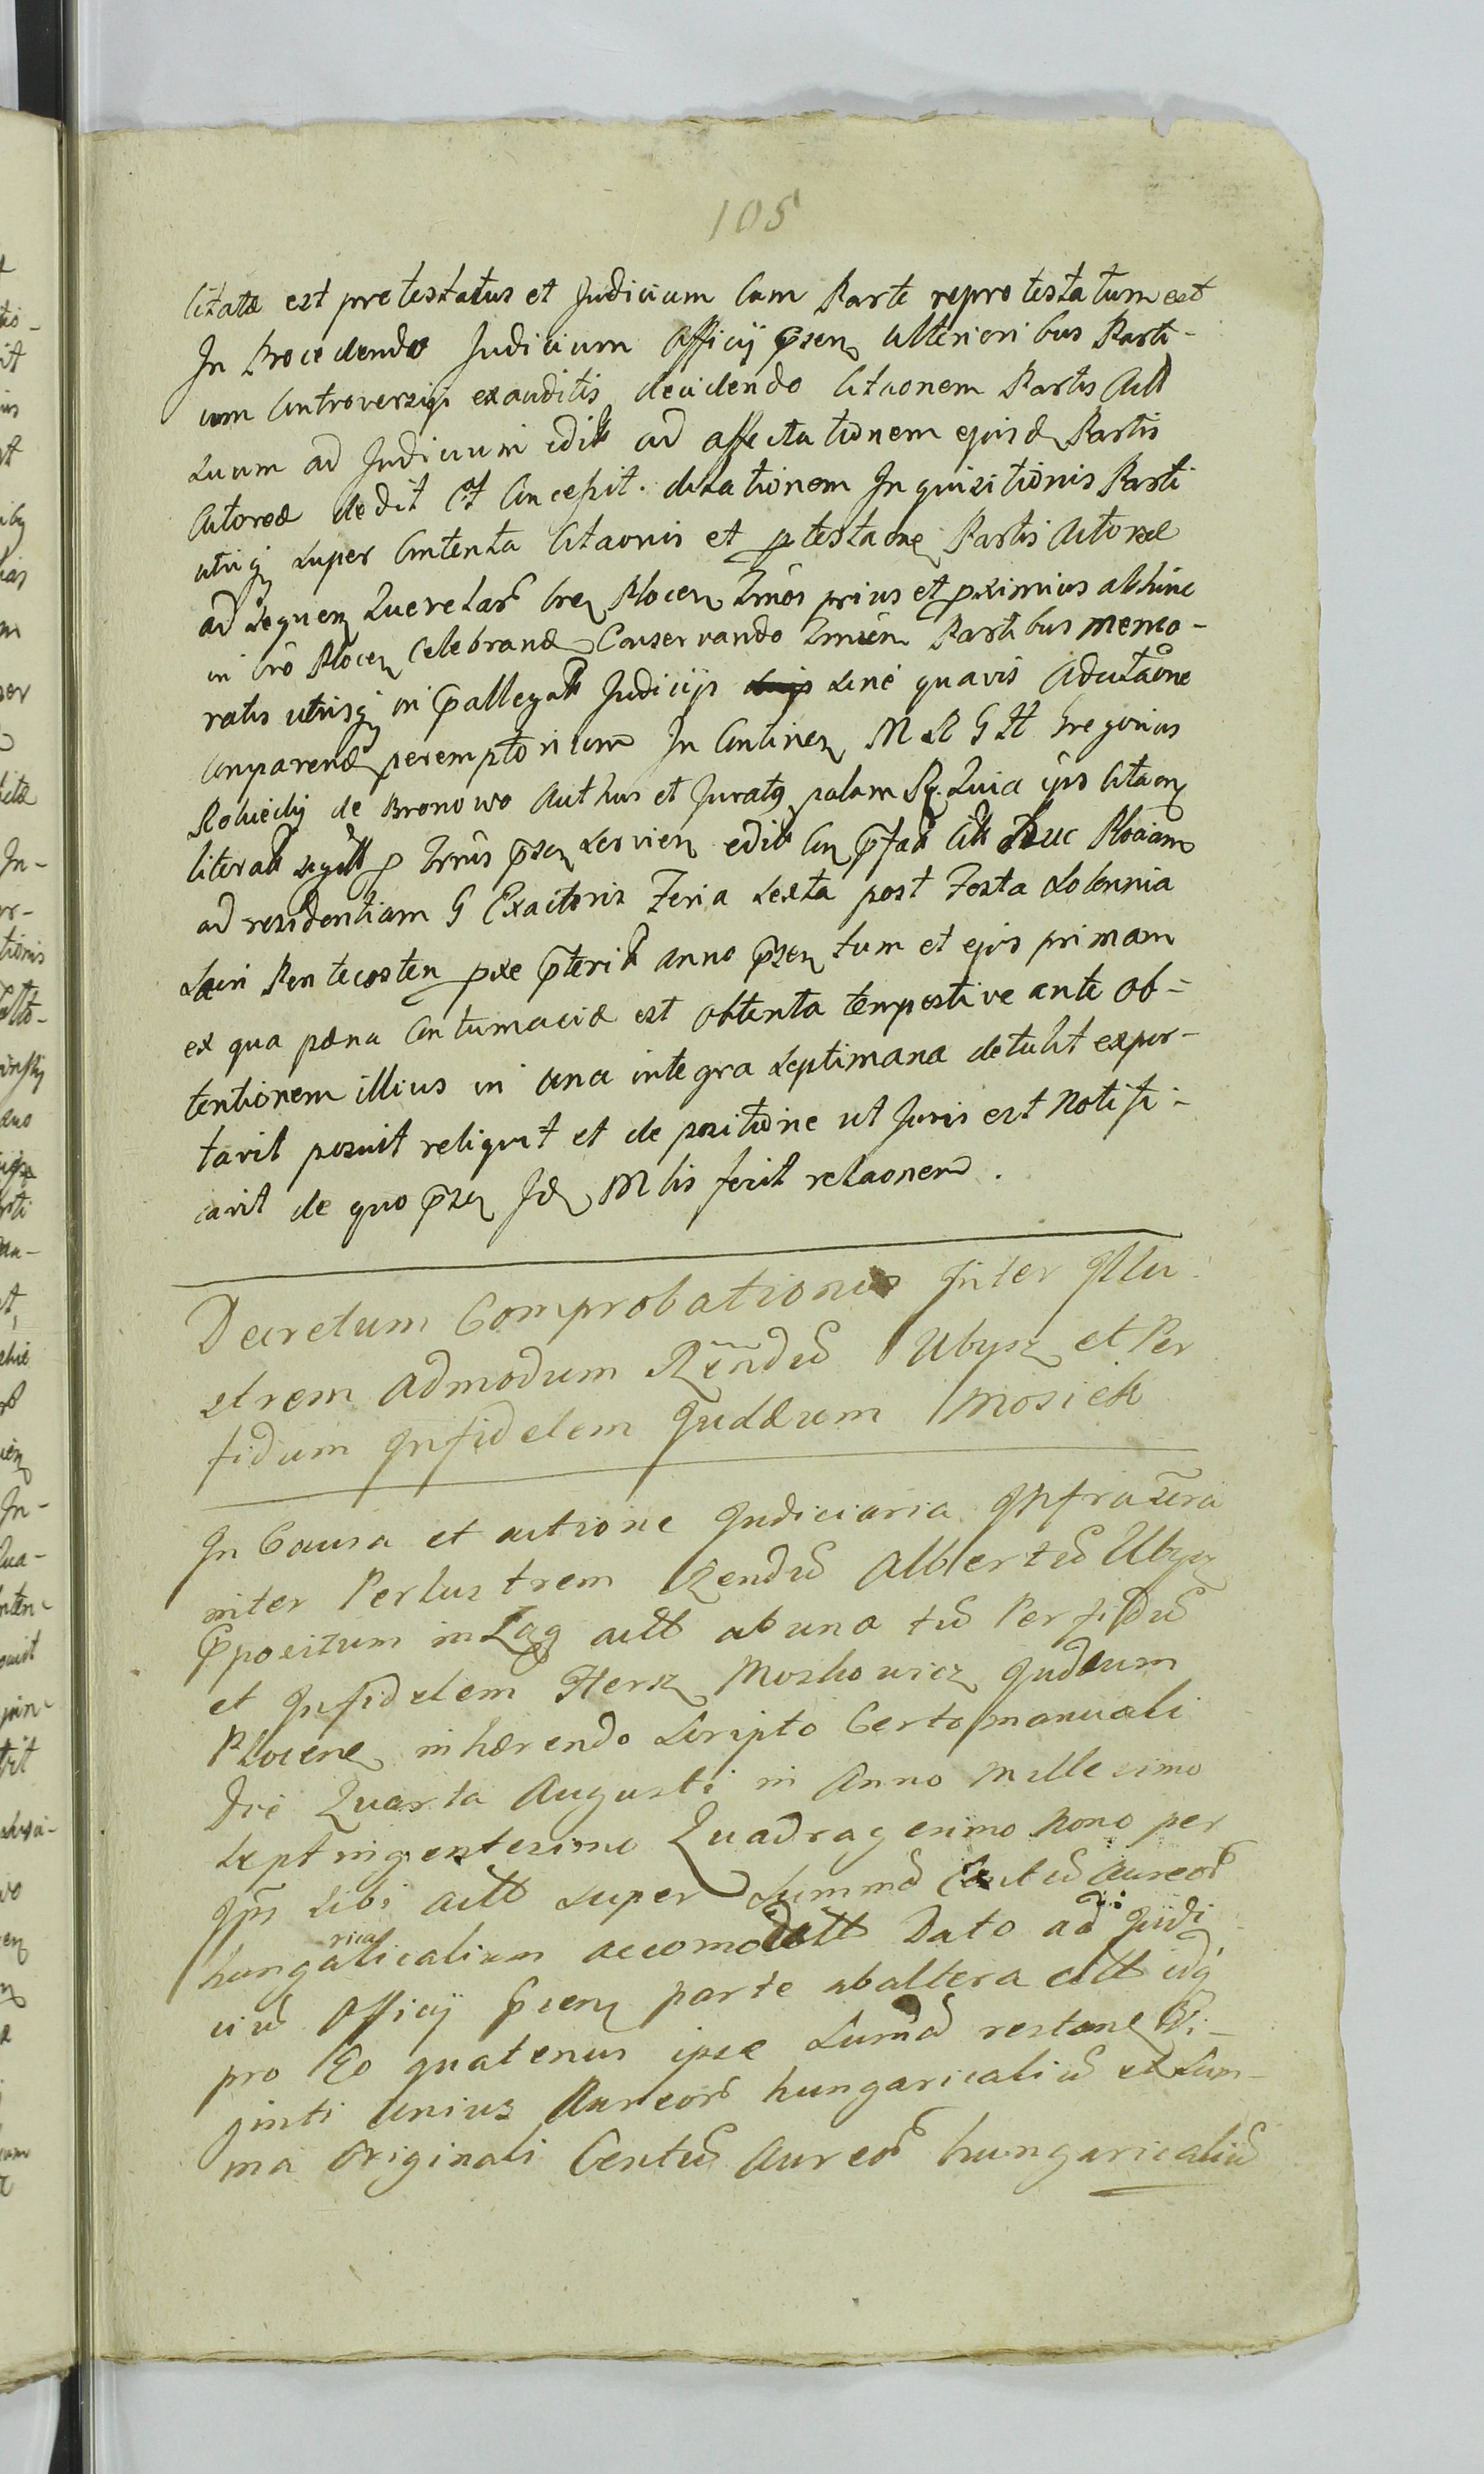 105
Citatæ est protestatus et Judicium Cum Parte reprotestatum est
In Procedendo Judicium Officij p̄sen Ulterioribus Parti-
um Controversijs exauditis decidendo Citaonem Partis Act
Suum ad Judicium edit ad affectationem ejusd Partis
Actoreæ dedit et Concepit. dilationem Inquisitionis Parti
utriq super Contenta Citaonis et ptestaone Partis Actoreæ
ad sequen Querelar Cren Plocen Trnos prius et pximius abhinc
in Cro Plocen Celebrand Conservando Trmin Partibus memo-
ratis utrisq in p̄allegat Judicijs sine quavis Adcitaone
Comparend peremptorium In Continen M R G H Gregorius
Roscieckj de Bronowo Authus et Juratq palam Rg. Quia ips Citaon
literat sigill p Trnis p̄sen servien edit Cu p̄fat Citt Huc Plociam
ad residentiam G Exactoris Feria Sexta post Festa Solennia
Sacri Pentecosten pxe p̄terit anno p̄sen tum et ejus primam
ex qua pæna Contumaciæ est obtenta tempestive ante ob-
tentionem illius in una integra Septimana detulit expor-
tavit posuit reliquit et de positione ut Juris est Notifi-
cavit de quo p̄sen Id Mlis fecit relaonem.
Decretum Comprobationis Inter Illu
strem Admodum Rēndū Ubysz et Per
fidum Infidelem Judæum Mosiek
In Causa et actione Judiciaria Infrascra
inter Perlustrem Rendū Albertū Ubysz
P̄positum in Lag actt ab una tū Perfidū
et Infidelem Hersz Moskowicz Judæum
Plocene inhærendo Scripto Certo manuali
Die Quarta Augusti in Anno Millesimo
Septingentesimo Quadragesimo Nono per
Ips sibi actt super Summā Centū aureor
hungaricalium accomodatt Dato ad Judi
ciū Officij P̄sen parte ab altera citt idq
pro Eo quatenus ipse Sumā restan Vi-
ginti Unius Aureor hungaricaliū et Sum-
ma Originali Centū Aureor hungaricaliū